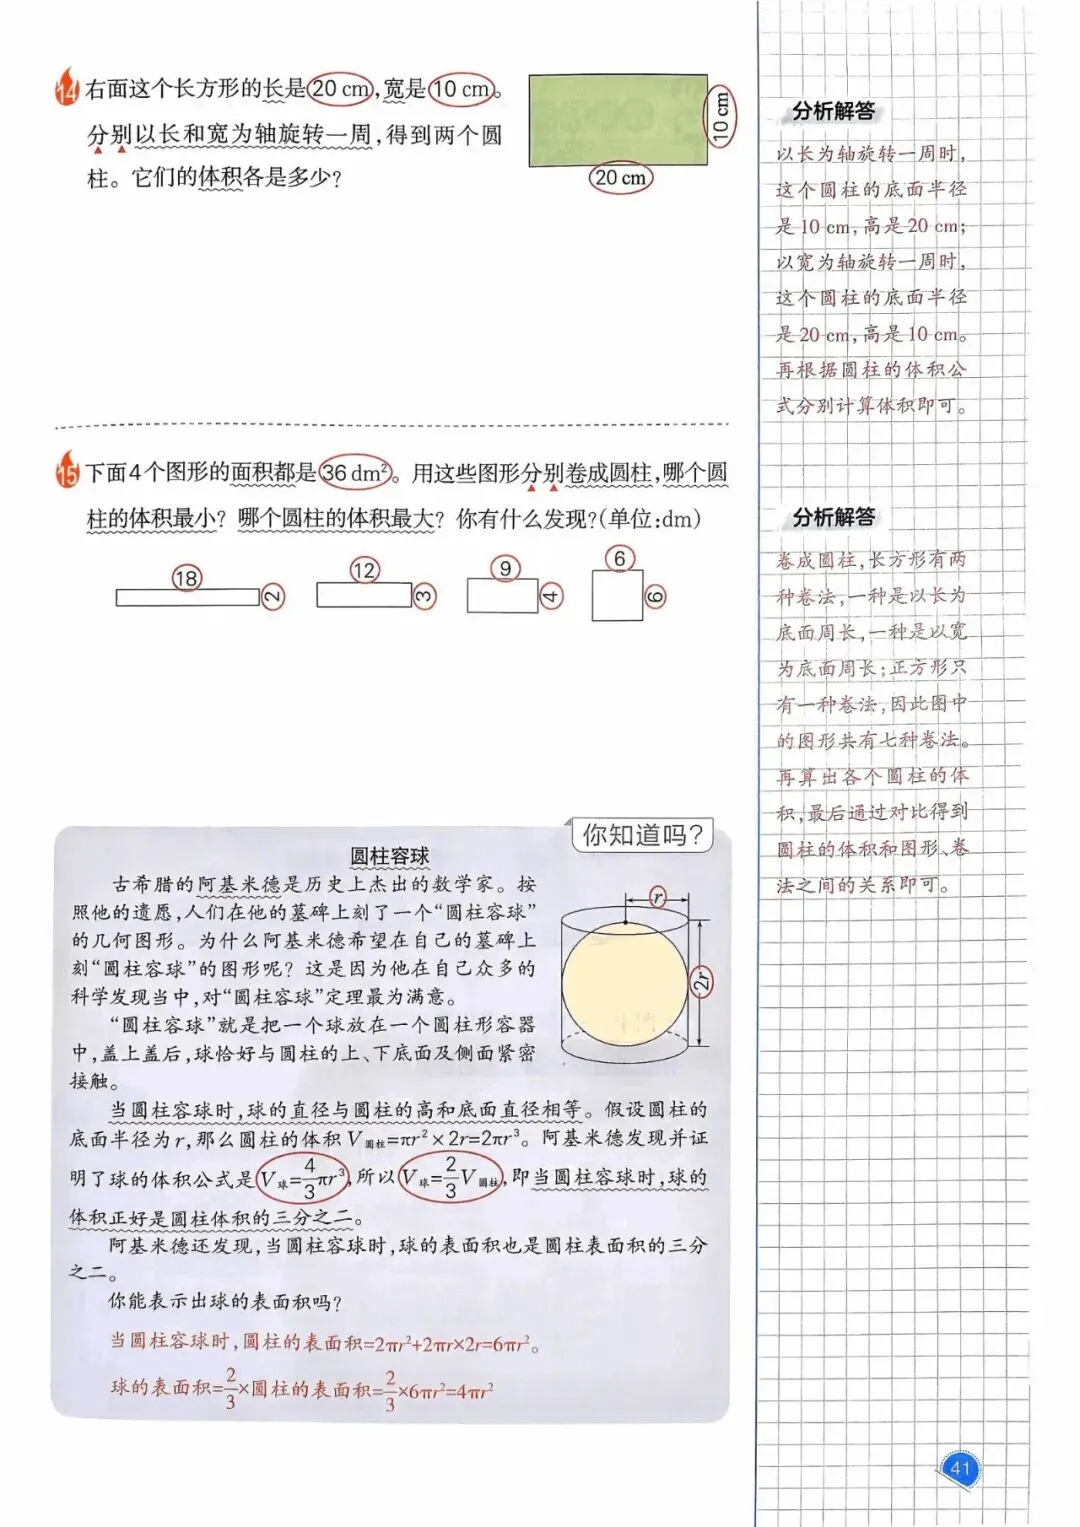 14 右面这个长方形的长是20 cm,宽是10 cm。
分别以长和宽为轴旋转一周,得到两个圆
柱。它们的体积各是多少?
10 cm
20 cm
分析解答
以长为轴旋转一周时,
这个圆柱的底面半径
是10 cm,高是20 cm;
以宽为轴旋转一周时,
这个圆柱的底面半径
是20 cm,高是10 cm。
再根据圆柱的体积公
式分别计算体积即可。
15 下面4个图形的面积都是36 dm²。用这些图形分别卷成圆柱,哪个圆
柱的体积最小?哪个圆柱的体积最大?你有什么发现?(单位:dm)
18
2
12
3
9
4
6
6
分析解答
卷成圆柱,长方形有两
种卷法,一种是以长为
底面周长,一种是以宽
为底面周长;正方形只
有一种卷法,因此图中
的图形共有七种卷法。
再算出各个圆柱的体
积,最后通过对比得到
圆柱的体积和图形、卷
法之间的关系即可。
你知道吗?
圆柱容球
古希腊的阿基米德是历史上杰出的数学家。按
照他的遗愿,人们在他的墓碑上刻了一个“圆柱容球”
的几何图形。为什么阿基米德希望在自己的墓碑上
刻“圆柱容球”的图形呢?这是因为他在自己众多的
科学发现当中,对“圆柱容球”定理最为满意。
“圆柱容球”就是把一个球放在一个圆柱形容器
中,盖上盖后,球恰好与圆柱的上、下底面及侧面紧密
接触。
r
2r
当圆柱容球时,球的直径与圆柱的高和底面直径相等。假设圆柱的
底面半径为r,那么圆柱的体积V圆柱=πr²×2r=2πr³。阿基米德发现并证
明了球的体积公式是V球=4/3πr³,所以V球=2/3V圆柱,即当圆柱容球时,球的
体积正好是圆柱体积的三分之二。
阿基米德还发现,当圆柱容球时,球的表面积也是圆柱表面积的三分
之二。
你能表示出球的表面积吗?
当圆柱容球时,圆柱的表面积=2πr²+2πr×2r=6πr²。
球的表面积=2/3×圆柱的表面积=2/3×6πr²=4πr²
41